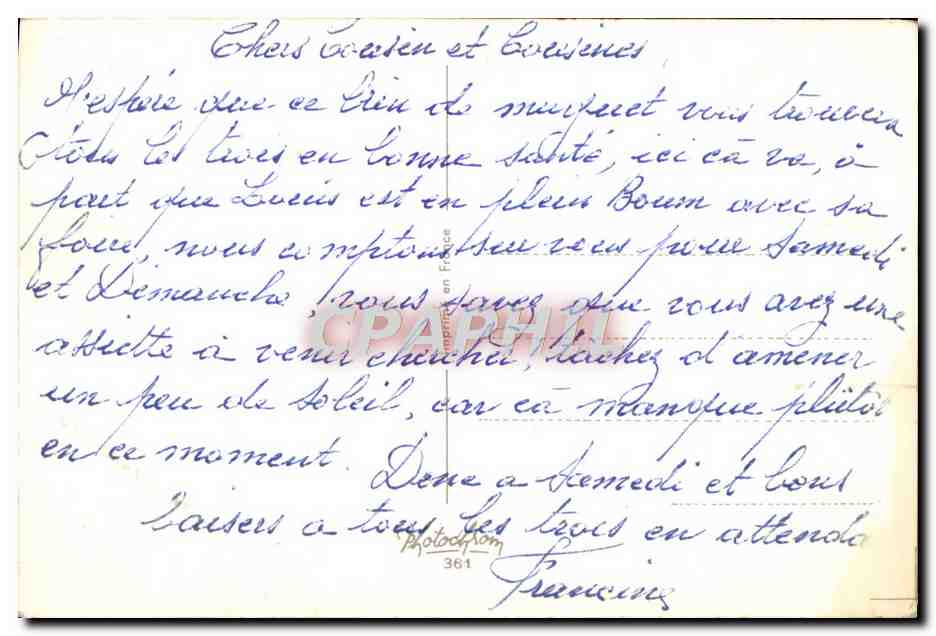 Chers Cousin et Cousines,
J'espère que ce brin de muguet vous trouvera
tous les trois en bonne santé, ici cà va, à
part que Louis est en plein Boum avec sa
foire, nous comptons sur vous pour Samedi
et Dimanche, vous savez que vous avez une
assiette à venir chercher, tachez d'amener
un peu de soleil, car cà manque plûtot
en ce moment. Donc a Samedi et bons
baisers a tous les trois en attenda
Francine
Imprimé en France
CPAPHIL
Photochrom
361